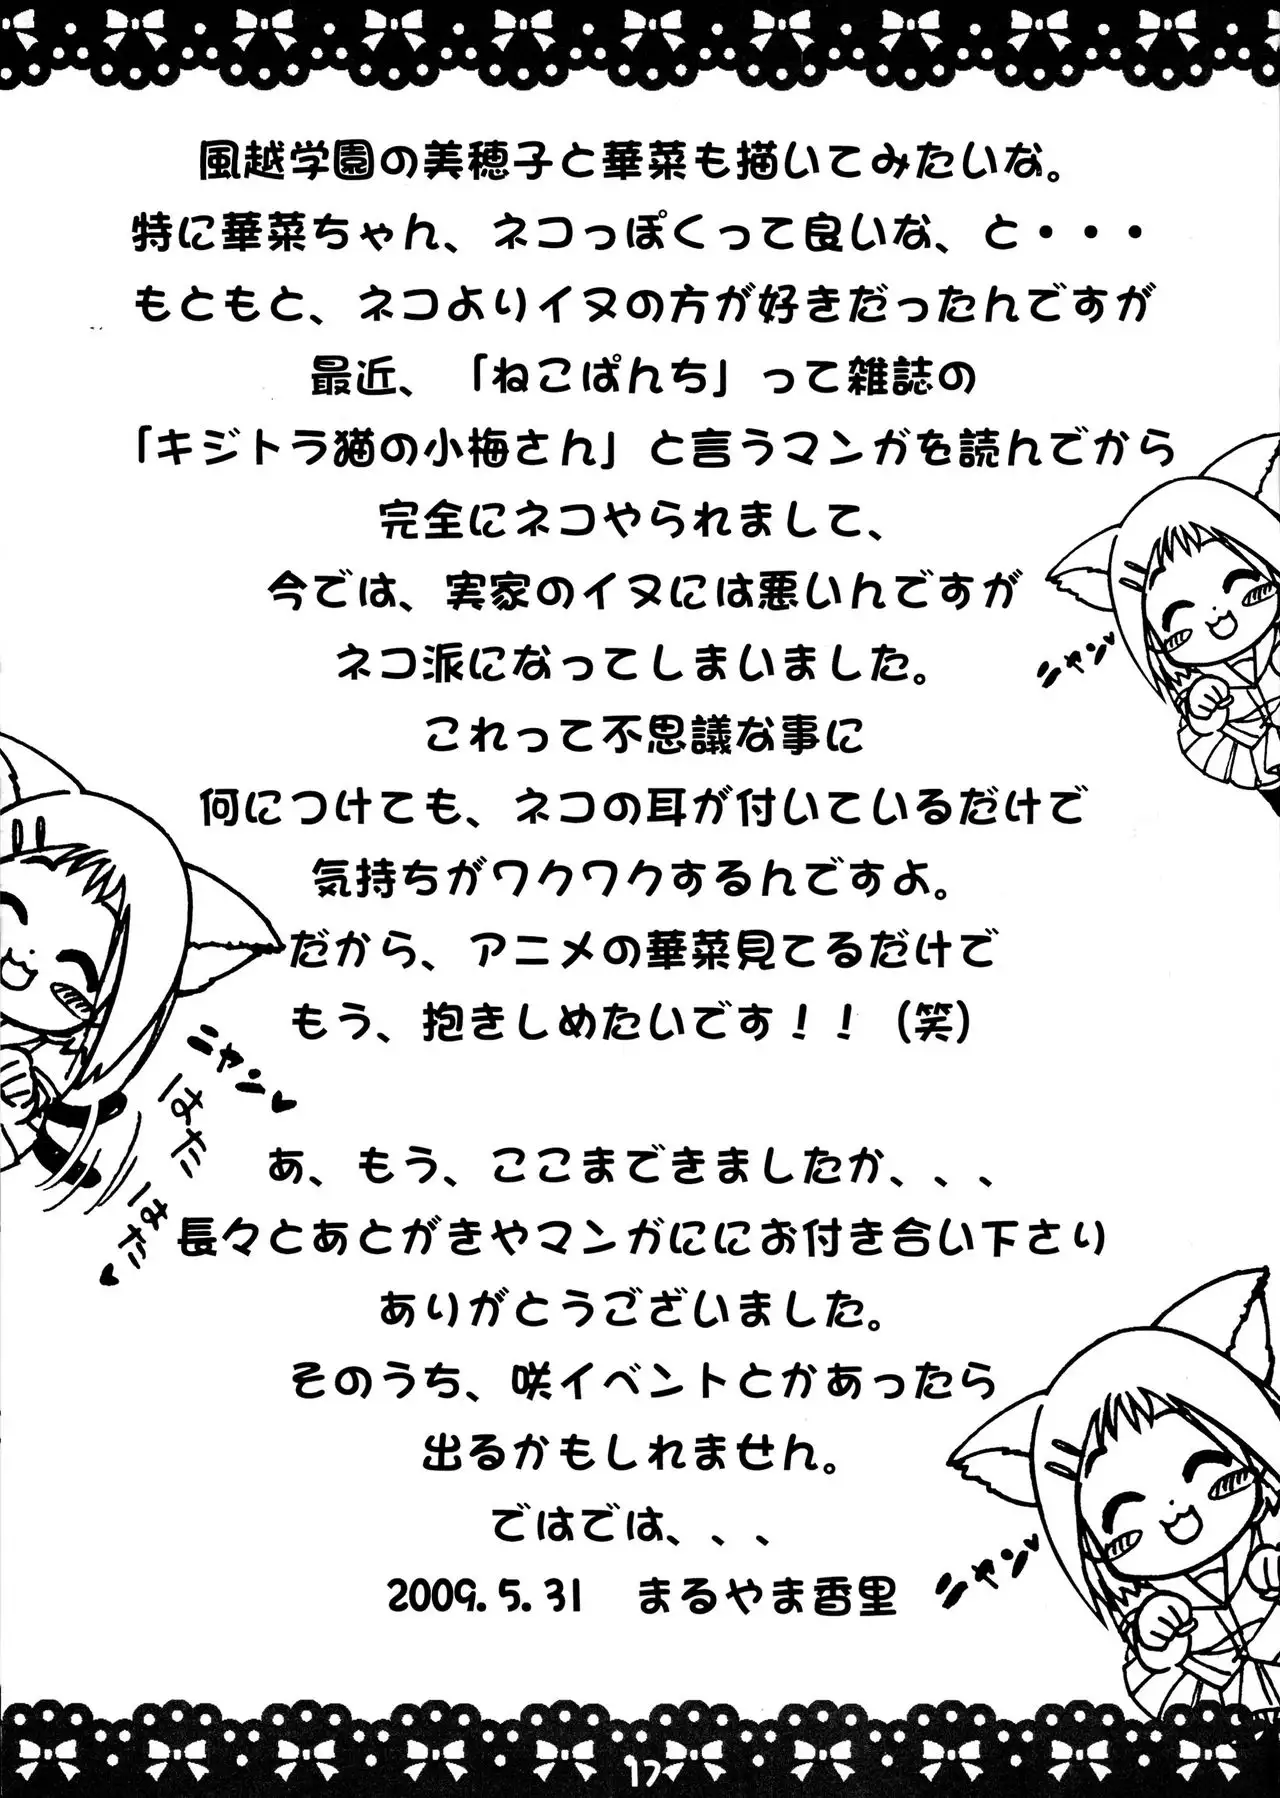 風越学園の美穂子と華菜も描いてみたいな。
特に華菜ちゃん、ネコっぽくって良いな、と・・・
もともと、ネコよりイヌの方が好きだったんですが
最近、「ねこぱんち」って雑誌の
「キジトラ猫の小梅さん」と言うマンガを読んでから
完全にネコやられまして、
今では、実家のイヌには悪いんですが
ネコ派になってしまいました。
これって不思議な事に
何につけても、ネコの耳が付いているだけで
気持ちがワクワクするんですよ。
だから、アニメの華菜見てるだけで
もう、抱きしめたいです！！（笑）
ニャン♥
ニャン♥
はたはた♥
あ、もう、ここまできましたか、、、
長々とあとがきやマンガににお付き合い下さり
ありがとうございました。
そのうち、咲イベントとかあったら
出るかもしれません。
ではでは、、、
2009.5.31　まるやま香里
ニャン♥
17